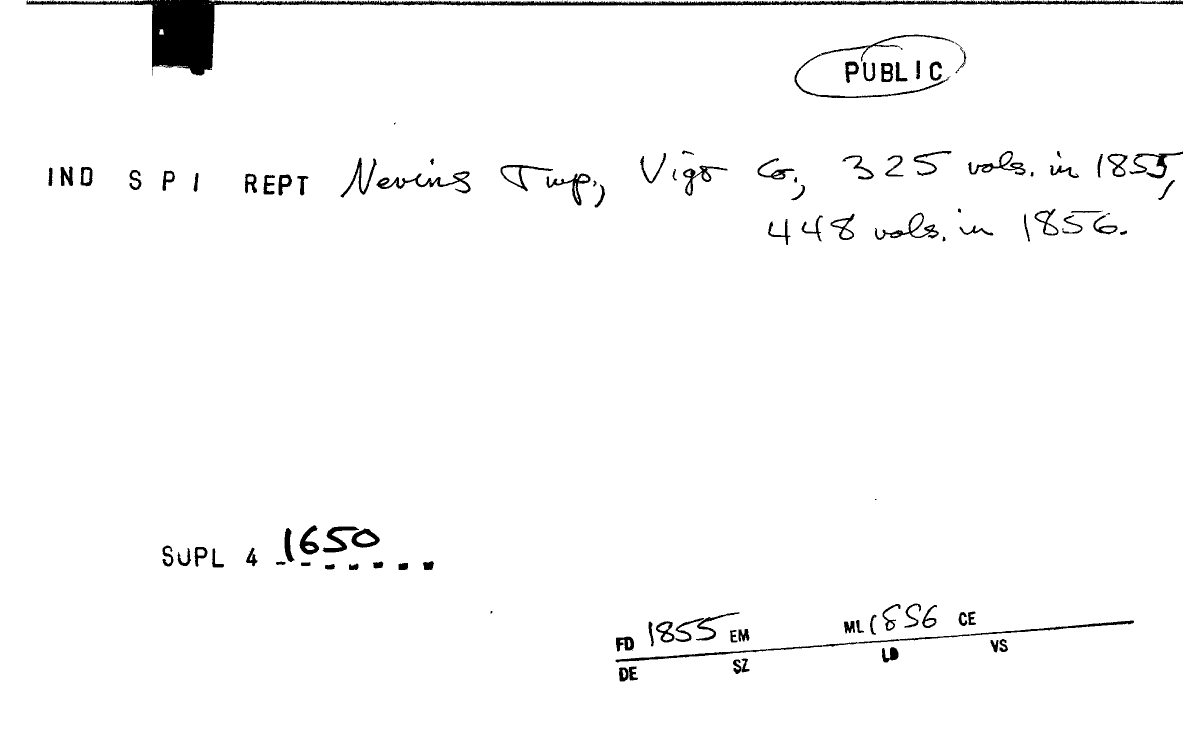 PUBLIC
IND S P I REPT Nevins Twp., Vigo Co., 325 vols. in 1855,
448 vols. in 1856.
SUPL 4 1650
FD 1855 EM ML 1856 CE
DE SZ LD VS